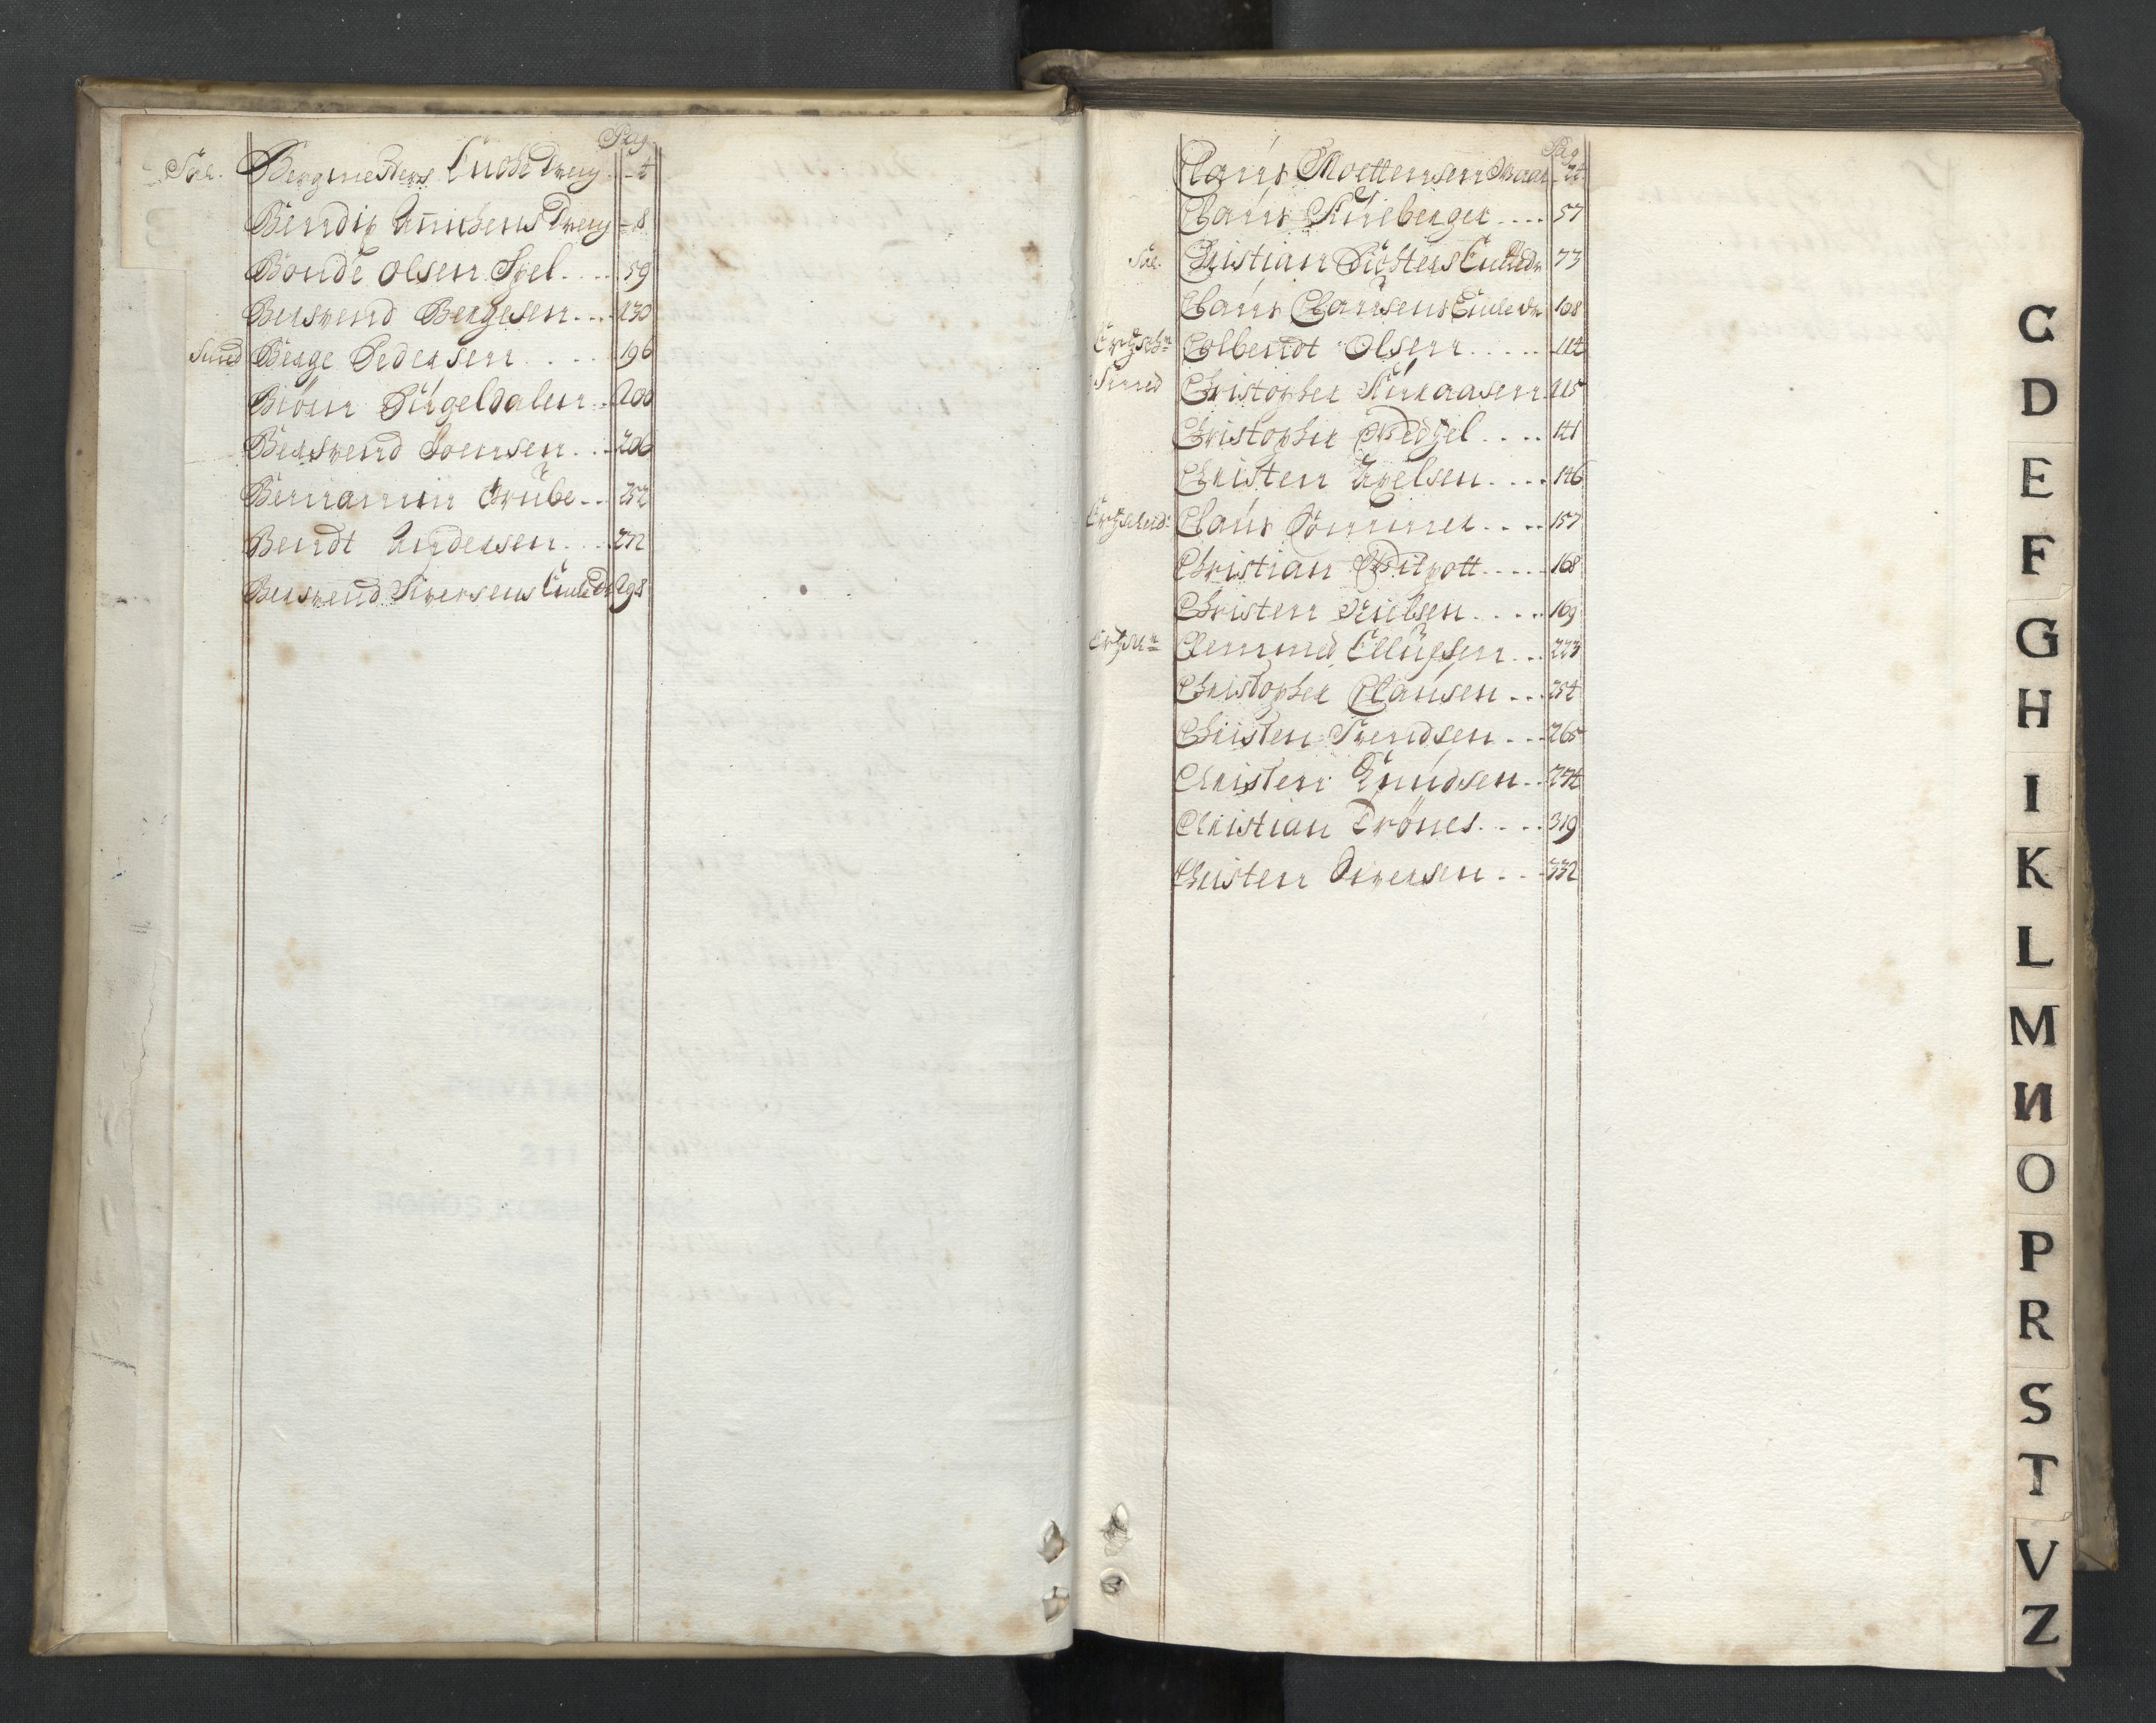 Pag
Sal. Bergmesters Encke Dreng 4
Bendix Annikens Dreng 8
Bonde Olsen Svel.... 59
Bersvend Bergesen... 130
Smed Berge Pedersen..... 196
Biörn Dürgeldalen.. 200
Bersvend Joensen... 206
Beniamin Grübe.. 252
Bendt Andersen.... 272
Bersvend Siversens Enke 298
Pag
Claus Mortensen 24
Claus Künberger.... 57
Sal. Christian Richters Encke 73
Claus Clausens Encke 108
Colbendt Olsen..... 114
Smed Christopher Jonaasen 115
Christopher Wedgel.... 141
Christen Axelsen.... 146
Claus Sommer.... 157
Christian Witpott..... 168
Christen Nielsen..... 169
Clemmed Ellüfsen... 223
Christopher Clausen... 254
Christen Svendsen... 265
Christen Knudsen... 274
Christian Drönes.... 319
Christen Siversen... 332
C
D
E
F
G
H
I
K
L
M
N
O
P
R
S
T
V
Z